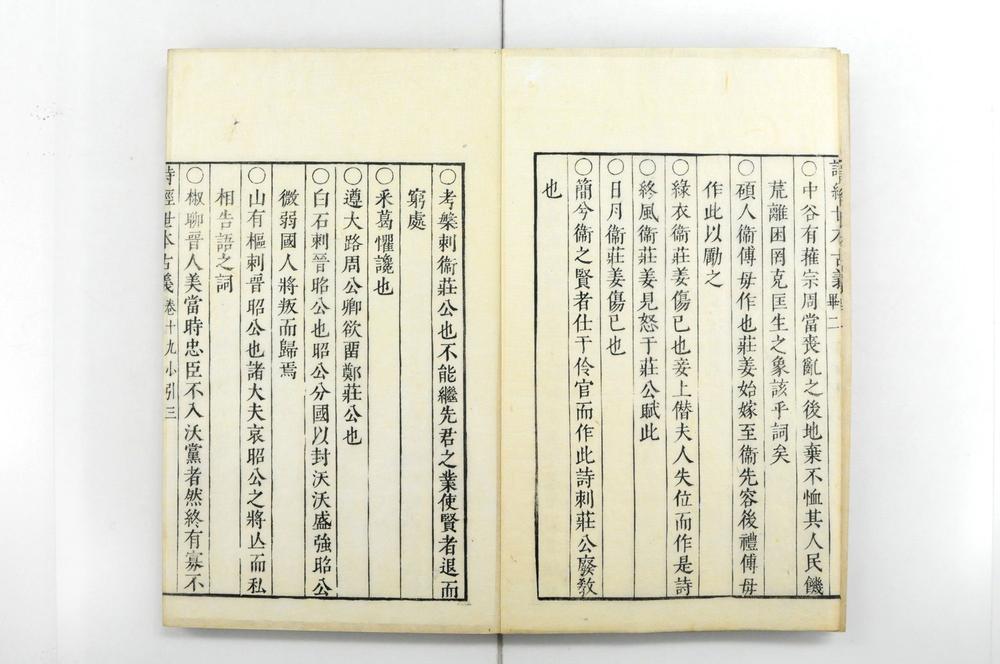 ○中谷有蓷宗周當喪亂之後地棄不恤其人民饑
荒離困罔克匡生之象該乎詞矣
○碩人衞傅母作也莊姜始嫁至衞先容後禮傅母
作此以勵之
○綠衣衞莊姜傷已也妾上僭夫人失位而作是詩
○終風衞莊姜見怒于莊公賦此
○日月衞莊姜傷已也
○簡兮衞之賢者仕于伶官而作此詩刺莊公廢敎
也
○考槃刺衞莊公也不能繼先君之業使賢者退而
窮處
○釆葛懼讒也
○遵大路周公卿欲畱鄭莊公也
○白石刺晉昭公也昭公分國以封沃沃盛強昭公
微弱國人將叛而歸焉
○山有樞刺晉昭公也諸大夫哀昭公之將亾而私
相告語之詞
○椒聊晉人美當時忠臣不入沃黨者然終有寡不
詩經世本古義 卷十九小引三